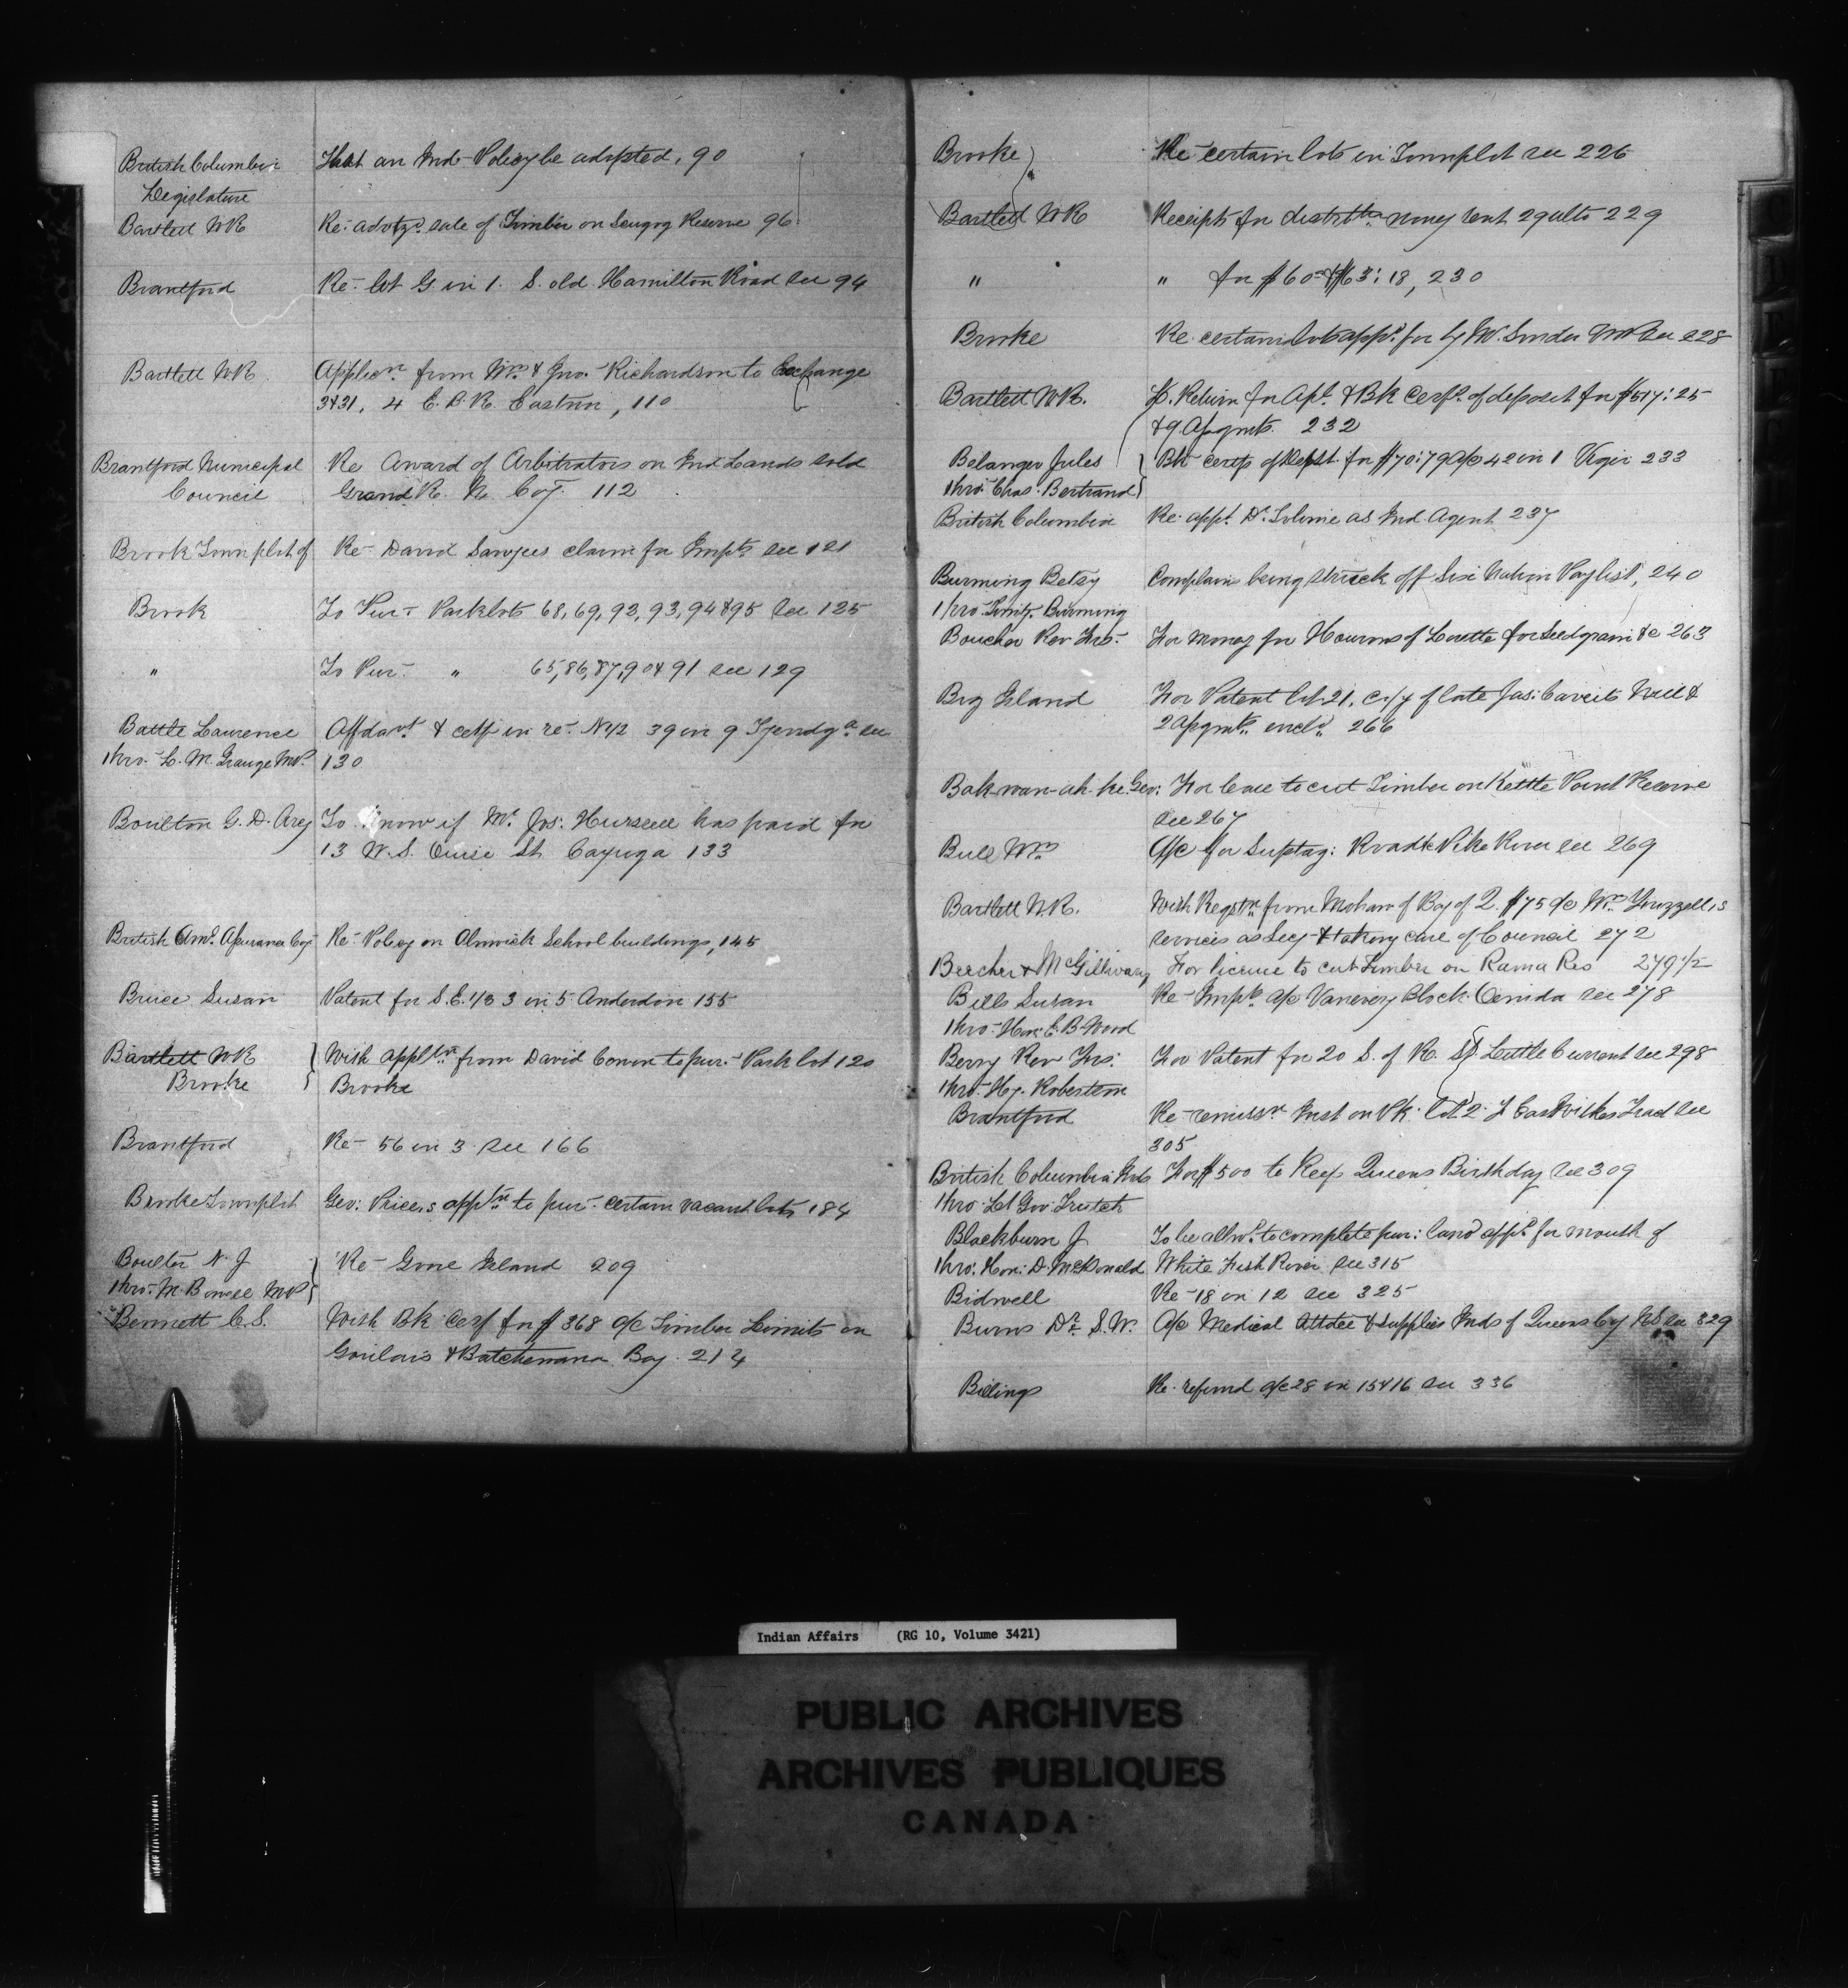 British Columbia That an Ind Policy be adopted, 90
Legislature
Bartlett WR Re: advtzg sale of Timber on Scugog Reserve 96
Brantford Re- lot G. in 1. S. old Hamilton Road see 94
Bartlett WR. Applicn from Wm & Jno. Richardson to Exchange
3&31, 4 E.B.R. Eastnor, 110
Brantford Municipal Re Award of Arbitrators on Ind Lands sold
Council Grand R. N. Coy. 112
Brook Townplot of Re- David Sawyers claim for Impts see 121
Brook To Pur- Parklots 68, 69, 92, 93, 94 & 95 see 125
" To Pur- " 65, 86, 87, 90 & 91 see 129
Battle Laurence Affdavt & certf in re- N 1/2 39 in 9 Tyendga see
thro- L. M. Grange MP. 130
Boulton G. D. Arcy To know if Mr Jos: Hursell has paid for
13 W. S. Ouse St. Cayuga 133
British Amn Assurance Coy Re- Policy on Alnwick School buildings, 145
Bruce Susan Patent for S.E. 1/3 3 in 5 Anderdon 155
Bartlett WR With appltn from David Cowan to pur- Park lot 120
Brooke Brooke
Brantford Re- 56 in 3 see 166
Brooke Townplot Geo: Prices appltn to pur- certain vacant lots 184
Boulter N. J Re- Gore Island 209
thro- M. Bowell MP
Bennett C.S. With Bk Cerf for $368 a/c Timber Limits on
Goulais & Batchewana Bay. 214
Brooke Re- certain lots in Townplot see 226
Bartlett WR Receipts for distribtn money sent 29 ulto 229
" " for $60 & $63:18, 230
Brooke Re. certain lots appd for by W. see 228
Bartlett WR. L. Return for Apl. & Bk Cerft. of deposit for $517:25
& 9 Assgmts. 232
Belanger Jules Bk certf of depst. for $70:79 a/c 42 in 1 Viger 233
thro- Chas: Bertrand
British Columbia Re- appt. Dr. Tolmie as Ind. Agent 237
Burning Betsy Complains being struck off Six Nation Paylist, 240
thro- Burning
Boucher Rev Frs- For money for Hurons of Lorette for Seedgrain &c 263
Big Island For Patent lot 21, c/y of late Jas: Will &
2 assgmts. encld. 266
Bakwan-ah-ke Geo: For leave to cut Timber on Kettle Point Reserve
see 267
Bull Wm A/c for Suptag: Road & Pike River see 269
Bartlett W.R. With Regstn from Mohaws of Bay of Q. $75 a/c Wm Frizzell,s
services as Secy & taking care of Council 272
Beecher & McGillivary For license to cut Timber on Rama Res 279 1/2
Bills Susan Re- Impts a/c Vanevery Block: Oenida see 278
thro- Hon: E. B. Wood
Berry Rev Frs: For Patent for 20 S. of R. St. Little Current see 298
thro- Hy. Robertson
Brantford Re- remissn Inst on Pk: lot 2. J. East Wilkes Tract see
305
British Columbia Inds For $500 to Keep Queens Birthday see 309
thro- Lt Gov Trutch
Blackburn J To be allwd. to complete pur: land appd for mouth of
thro: Hon: D. McDonald White Fish River see 315
Bidwell Re- 18 in 12 see 325
Burns Dr. S.W. A/c Medical Attdce & supplies Inds of Queens Coy NS see 329
Billings Re- refund a/c 28 in 15 & 16 see 336
Indian Affairs (RG 10, Volume 3421)
PUBLIC ARCHIVES
ARCHIVES PUBLIQUES
CANADA